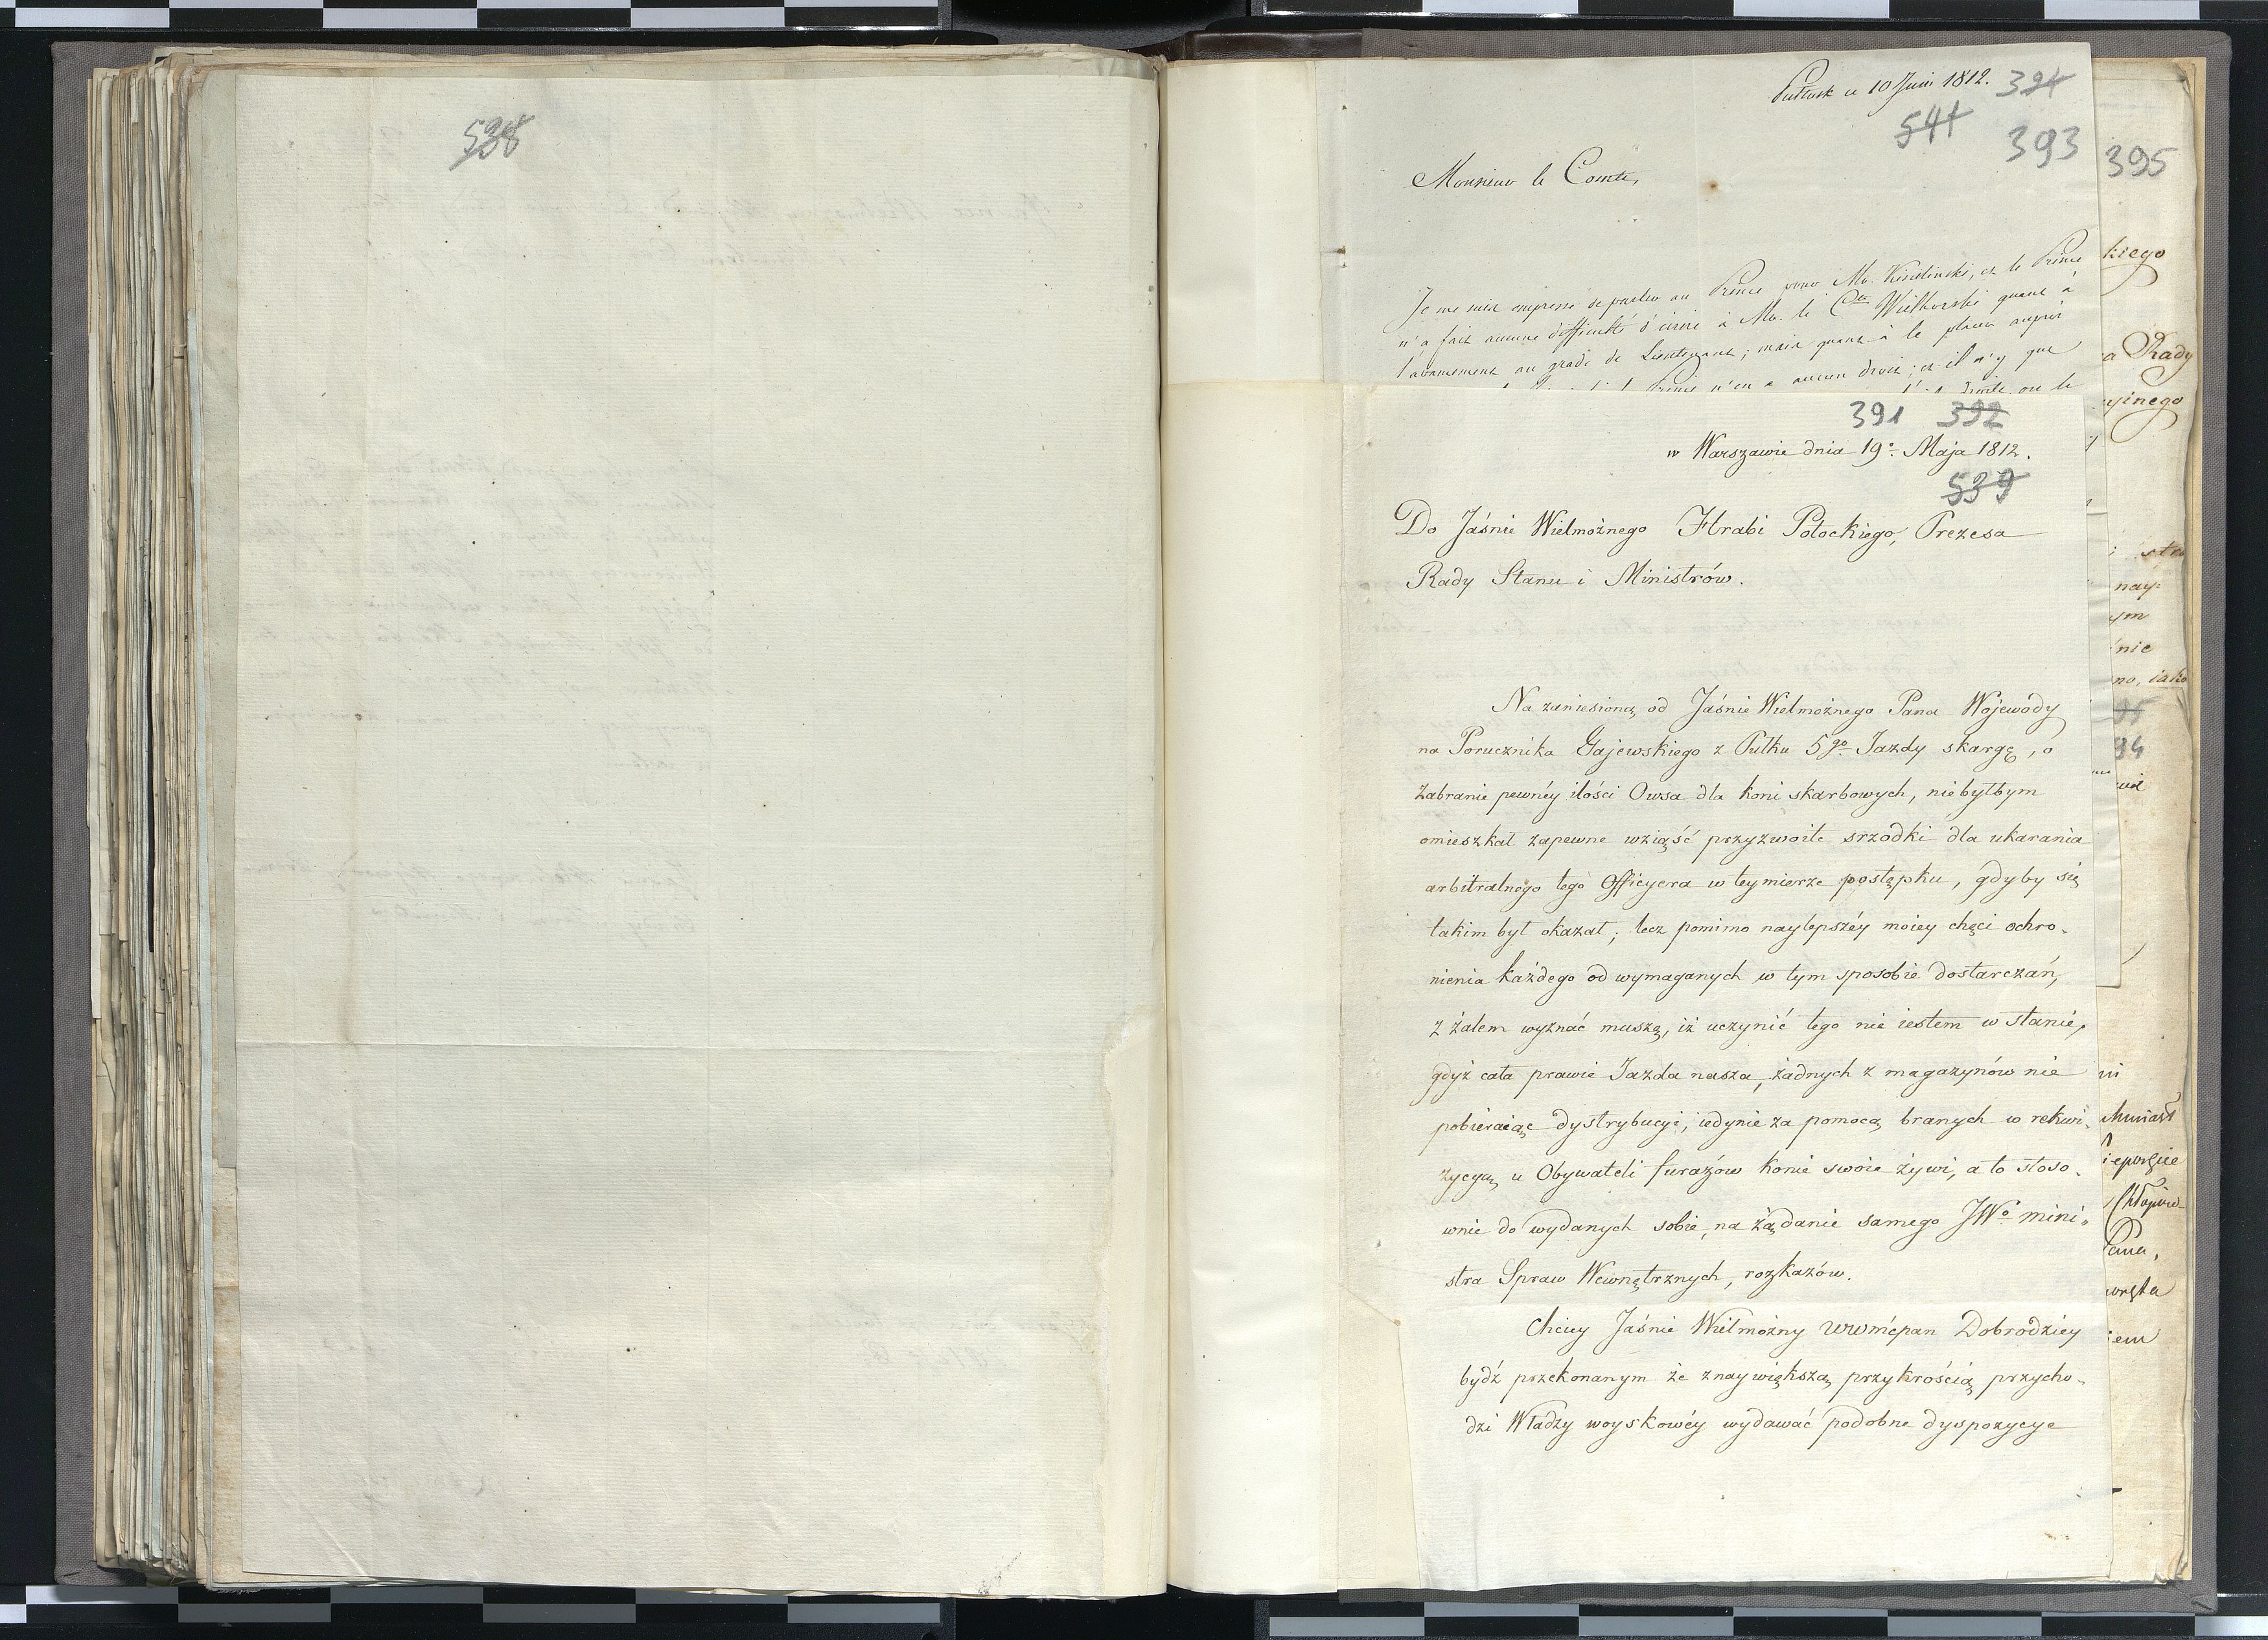 538
Pultusk ce 10 Juin 1812. 394
541 393
Monsieur le Comte,
Je me suis empressé de parler au Prince pour Mr. Kisielinski, et le Prince
n'a fait aucune difficulté d'écrire à Mr. le Cte Wielhorski quant à
l'avancement au grade de Lieutenant; mais quant à le placer auprès
Prince n'en a aucun droit; et il n'y que
391 392
w Warszawie dnia 19o Maja 1812.
539
Do Jaśnie Wielmożnego Hrabi Potockiego, Prezesa
Rady Stanu i Ministrów.
Na zaniesioną od Jaśnie Wielmożnego Pana Wojewody
na Porucznika Gajewskiego z Pułku 5go Jazdy skargę, o
zabranie pewnéy ilości Owsa dla koni skarbowych, niebyłbym
omieszkał zapewne wziąść przyzwoite srzodki dla ukarania
arbitralnego tego Officyera w teymierze postępku, gdyby się
takim był okazał; lecz pomimo naylepszéy moiey chęci ochro-
nienia każdego od wymaganych w tym sposobie dostarczań,
z żalem wyznać muszę, iż uczynić tego nie iestem w stanie,
gdyż cała prawie Jazda nasza, żadnych z magazynów nie
pobieraiąc dystrybucyi, iedynie za pomocą branych w rekwi-
zycyą u Obywateli furażów konie swoie żywi, a to stoso-
wnie do wydanych sobie, na żądanie samego JWo mini-
stra Spraw Wewnętrznych, rozkazów.
Chciey Jaśnie Wielmożny WWmćpan Dobrodziey
bydź przekonanym że znaywiększą przykrością przycho-
dzi Władzy woyskowéy wydawać podobne dyspozycye
395
kiego
a Rady
yinego
nay-
ym
nie
no, iako
95
94
iem